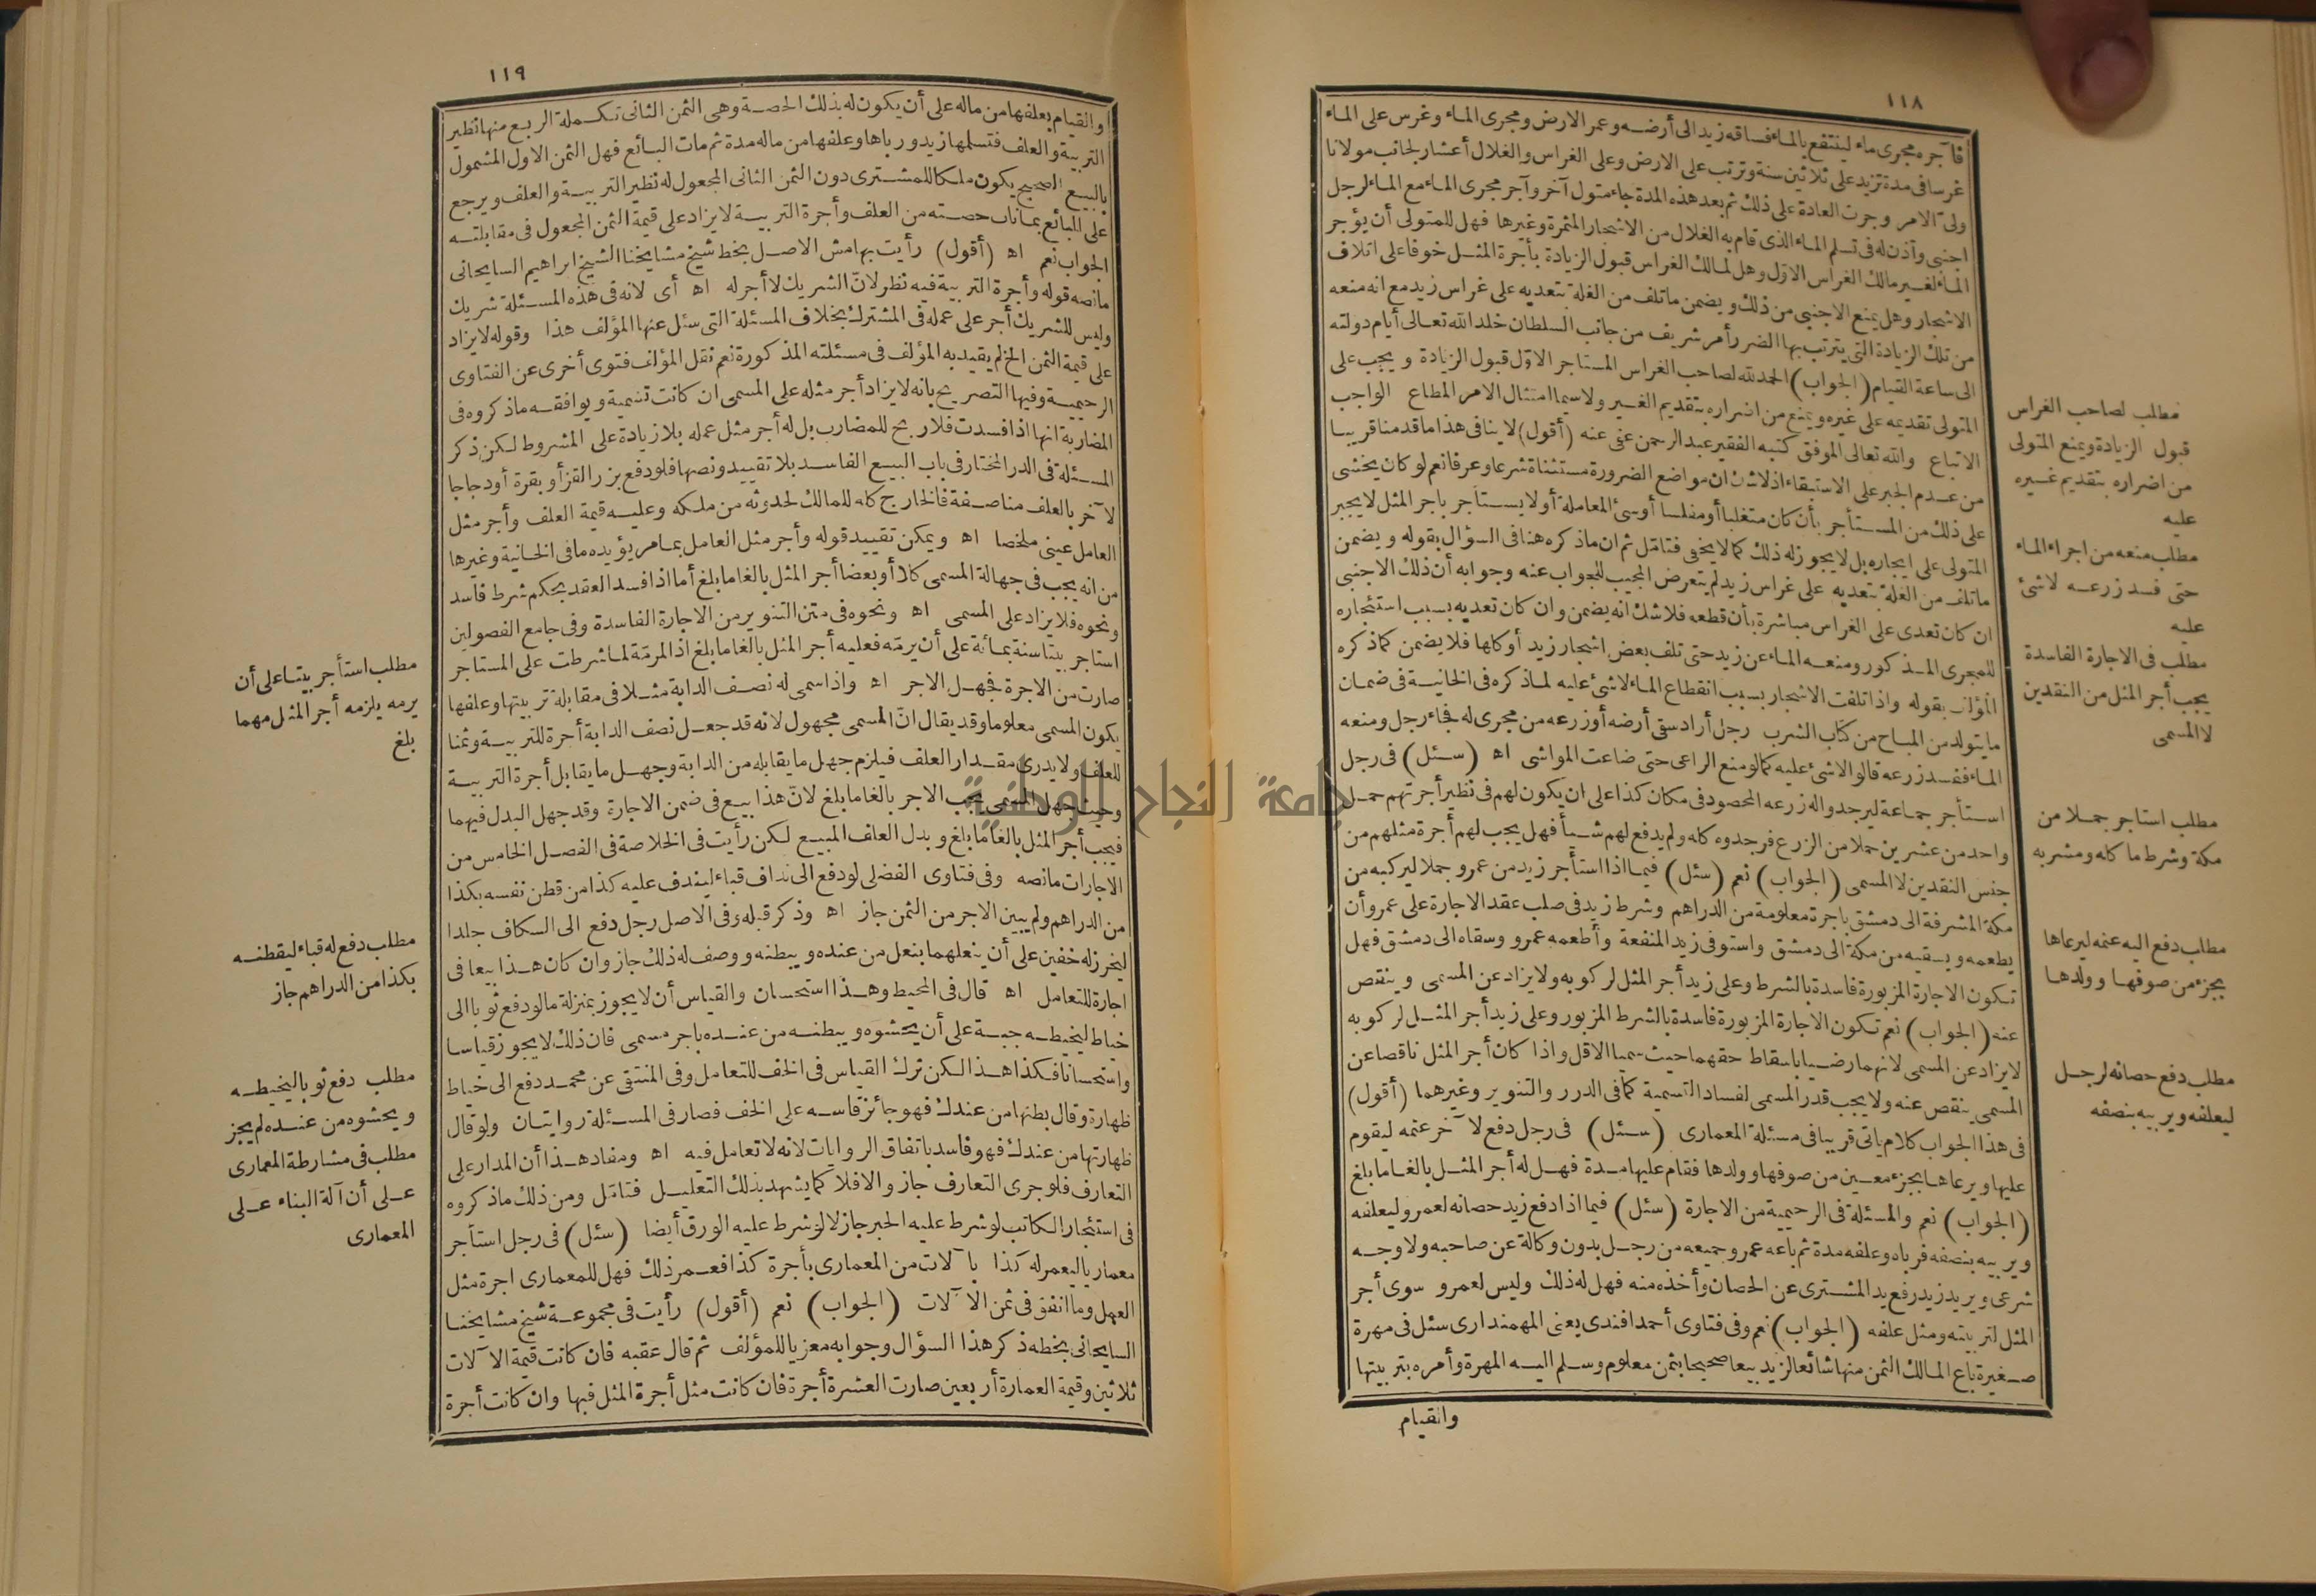 ١١٨
فآجره مجرى ماء لينتفع بالماء فساقه زيد الى أرضه وعمر الارض ومجرى الماء وغرس على الماء
غرسا فى مدة تزيد على ثلاثين سنة وترتب على الارض وعلى الغراس والغلال أعشار لجانب مولانا
ولى الامر وجرت العادة على ذلك ثم بعد هذه المدة جاء متول آخر وآجر مجرى الماء مع الماء لرجل
اجنبى وآذن له فى تسلم الماء الذى قام به الغلال من الاشجار المثمرة وغيرها فهل للمتولى أن يؤجر
الماء لغير مالك الغراس الاول وهل لمالك الغراس قبول الزيادة بأجرة المثل خوفا على اتلاف
الاشجار وهل يمنع الاجنبى من ذلك ويضمن ما تلف من الغلة بتعديه على غراس زيد مع انه منعه
من تلك الزيادة التى يترتب بها الضرر أمر شريف من جانب السلطان خلد الله تعالى أيام دولته
الى ساعة القيام (الجواب) الحمد لله لصاحب الغراس المستاجر الاول قبول الزيادة ويجب على
المتولى تقديمه على غيره ويمنع من اضراره بتقديم الغير ولا سيما امتثال الامر المطاع الواجب
الاتباع والله تعالى الموفق كتبه الفقير عبد الرحمن عفى عنه (أقول) لا ينافى هذا ما قدمنا قريبا
من عدم الجبر على الاستبقاء اذ لا شك ان مواضع الضرورة مستثناة شرعا وعرفا نعم لو كان يخشى
على ذلك من المستأجر بأن كان متغلبا أو مفلسا أو سئ المعاملة أو لا يستأجر باجر المثل لا يجبر
المتولى على ايجاره بل لا يجوز له ذلك كما لا يخفى فتامّل ثم ان ما ذكره هنا فى السؤال بقوله ويضمن
ما تلف من الغلة بتعديه على غراس زيد لم يتعرض المجيب للجواب عنه وجوابه أن ذلك الاجنبى
ان كان تعدى على الغراس مباشرة بأن قطعه فلا شك انه يضمن وان كان تعديه بسبب استئجاره
للمجرى المذكور ومنعه الماء عن زيد حتى تلف بعض اشجار زيد أو كلها فلا يضمن كما ذكره
المؤلف بقوله واذا تلفت الاشجار بسبب انقطاع الماء لا شئ عليه لما ذكره فى الخانية فى ضمان
ما يتولد من المباح من كتاب الشرب رجل أراد سقى أرضه أو زرعه من مجرى له فجاء رجل ومنعه
الماء ففسد زرعه قالوا لا شئ عليه كما لو منع الراعى حتى ضاعت المواشى اه (سئل) فى رجل
استأجر جماعة ليرجدوا له زرعه المحصود فى مكان كذا على ان يكون لهم فى نظير أجرتهم حمل
واحد من عشرين حملا من الزرع فرجدوه كله ولم يدفع لهم شيأ فهل يجب لهم أجرة مثلهم من
جنس النقدين لا المسمى (الجواب) نعم (سئل) فيما اذا استأجر زيد من عمرو جملا ليركبه من
مكة المشرفة الى دمشق باجرة معلومة من الدراهم وشرط زيد فى صلب عقد الاجارة على عمرو أن
يطعمه ويسقيه من مكة الى دمشق واستوفى زيد المنفعة وأطعمه عمرو وسقاه الى دمشق فهل
تكون الاجارة المزبورة فاسدة بالشرط وعلى زيد أجر المثل لركوبه ولا يزاد عن المسمى وينقص
عنه (الجواب) نعم تكون الاجارة المزبورة فاسدة بالشرط المزبور وعلى زيد أجر المثل لركوبه
لا يزاد عن المسمى لانهما رضيا باسقاط حقهما حيث سميا الاقل واذا كان أجر المثل ناقصا عن
المسمى ينقص عنه ولا يجب قدر المسمى لفساد التسمية كما فى الدرر والتنوير وغيرهما (أقول)
فى هذا الجواب كلام يأتى قريبا فى مسئلة المعمارى (سئل) فى رجل دفع لآخر غنمه ليقوم
عليها ويرعاها بجزء معين من صوفها وولدها فقام عليها مدة فهل له أجر المثل بالغا ما بلغ
(الجواب) نعم والمسئلة فى الرحيمية من الاجارة (سئل) فيما اذا دفع زيد حصانه لعمرو ليعلفه
ويربيه بنصفه فرباه وعلفه مدة ثم باعه عمرو جميعه من رجل بدون وكالة عن صاحبه ولا وجه
شرعى ويريد زيد رفع يد المشترى عن الحصان وأخذه منه فهل له ذلك وليس لعمرو سوى أجر
المثل لتربيته ومثل علفه (الجواب) نعم وفى فتاوى أحمد افندى يعنى المهمندارى سئل فى مهرة
صغيرة باع المالك الثمن منها شائعا لزيد بيعا صحيحا بثمن معلوم وسلم اليه المهرة وأمره بتربيتها
والقيام
مطلب لصاحب الغراس
قبول الزيادة ويمنع المتولى
من اضراره بتقديم غيره
عليه
مطلب منعه من اجراء الماء
حتى فسد زرعه لا شئ
عليه
مطلب فى الاجارة الفاسدة
يجب أجر المثل من النقدين
لا المسمى
مطلب استاجر جملا من
مكة وشرط ما كله ومشربه
مطلب دفع اليه غنمه ليرعاها
بجزء من صوفها وولدها
مطلب دفع حصانه لرجل
ليعلفه ويربيه بنصفه
١١٩
والقيام بعلفها من ماله على أن يكون له بذلك الحصة وهى الثمن الثانى تكملة الربع منها نظير
التربية والعلف فتسلمها زيد ورباها وعلفها من ماله مدة ثم مات البائع فهل الثمن الاول المشمول
بالبيع الصحيح يكون ملكا للمشترى دون الثمن الثانى المجعول له نظير التربية والعلف ويرجع
على البائع بما ناب حصته من العلف وأجرة التربية لا يزاد على قيمة الثمن المجعول فى مقابلته
الجواب نعم اه (أقول) رأيت بهامش الاصل بخط شيخ مشايخنا الشيخ ابراهيم السايحانى
ما نصه قوله وأجرة التربية فيه نظر لانّ الشريك لا أجر له اه أى لانه فى هذه المسئلة شريك
وليس للشريك أجر على عمله فى المشترك بخلاف المسئلة التى سئل عنها المؤلف هذا وقوله لا يزاد
على قيمة الثمن الخ لم يقيد به المؤلف فى مسئلته المذكورة نعم نقل المؤلف فتوى أخرى عن الفتاوى
الرحيمية وفيها التصريح بانه لا يزاد أجر مثله على المسمى ان كانت تسمية ويوافقه ما ذكروه فى
المضاربة انها اذا فسدت فلا ربح للمضارب بل له أجر مثل عمله بلا زيادة على المشروط لكن ذكر
المسئلة فى الدر المختار فى باب البيع الفاسد بلا تقييد ونصها فلو دفع بزر القز أو بقرة أو دجاجا
لآخر بالعلف مناصفة فالخارج كله للمالك لحدوثه من ملكه وعليه قيمة العلف وأجر مثل
العامل عينى ملخصا اه ويمكن تقييد قوله وأجر مثل العامل بما مر يؤيده ما فى الخانية وغيرها
من انه يجب فى جهالة المسمى كلا أو بعضا أجر المثل بالغا ما بلغ أما اذا فسد العقد بحكم شرط فاسد
ونحوه فلا يزاد على المسمى اه ونحوه فى متن التنوير من الاجارة الفاسدة وفى جامع الفصولين
استاجر بيتا سنة بمائة على أن يرمّه فعليه أجر المثل بالغا ما بلغ اذ المرمّة لما شرطت على المستاجر
صارت من الاجرة فجهل الاجر اه واذا سمى له نصف الدابة مثلا فى مقابلة تربيتها وعلفها
يكون المسمى معلوما وقد يقال انّ المسمى مجهول لانه قد جعل نصف الدابة أجرة للتربية وثمنا
للعلف ولا يدرى مقدار العلف فيلزم جهل ما يقابله من الدابة وجهل ما يقابل أجرة التربية
وحيث جهل المسمى يجب الاجر بالغا ما بلغ لانّ هذا بيع فى ضمن الاجارة وقد جهل البدل فيهما
فيجب أجر المثل بالغا ما بلغ وبدل العلف المبيع لكن رأيت فى الخلاصة فى الفصل الخامس من
الاجارات ما نصه وفى فتاوى الفضلى لو دفع الى نداف قباء ليندف عليه كذا من قطن نفسه بكذا
من الدراهم ولم يبين الاجر من الثمن جاز اه وذكر قبله وفى الاصل رجل دفع الى اسكاف جلدا
ليخرز له خفين على أن ينعلهما بنعل من عنده ويبطنه ووصف له ذلك جاز وان كان هذا بيعا فى
اجارة للتعامل اه قال فى المحيط وهذا استحسان والقياس أن لا يجوز بمنزلة ما لو دفع ثوبا الى
خياط ليخيطه جبة على أن يحشوه ويبطنه من عنده باجر مسمى فان ذلك لا يجوز قياسا
واستحسانا فكذا هذا لكن ترك القياس فى الخف للتعامل وفى المنتقى عن محمد دفع الى خياط
ظهارة وقال بطنها من عندك فهو جائز قاسه على الخف فصار فى المسئلة روايتان ولو قال
ظهارتها من عندك فهو فاسد باتفاق الروايات لانه لا تعامل فيه اه ومفاد هذا أن المدار على
التعارف فلو جرى التعارف جاز والا فلا كما يشهد بذلك التعليل فتامّل ومن ذلك ما ذكروه
فى استئجار الكاتب لو شرط عليه الحبر جاز لا لو شرط عليه الورق أيضا (سئل) فى رجل استأجر
معماريا ليعمر له كذا بآلات من المعمارى بأجرة كذا فعمر ذلك فهل للمعمارى اجرة مثل
العمل وما انفق فى ثمن الآلات (الجواب) نعم (أقول) رأيت فى مجموعة شيخ مشايخنا
السايحانى بخطه ذكر هذا السؤال وجوابه معزيا للمؤلف ثم قال عقبه فان كانت قيمة الآلات
ثلاثين وقيمة العمارة أربعين صارت العشرة أجرة فان كانت مثل أجرة المثل فبها وان كانت أجرة
مطلب استأجر بيتا على أن
يرمه يلزمه أجر المثل مهما
بلغ
مطلب دفع له قباء ليقطنه
بكذا من الدراهم جاز
مطلب دفع ثوبا ليخيطه
ويحشوه من عنده لم يجز
مطلب فى مشارطة المعمارى
على أن آلة البناء على
المعمارى
جامعة النجاح الوطنية